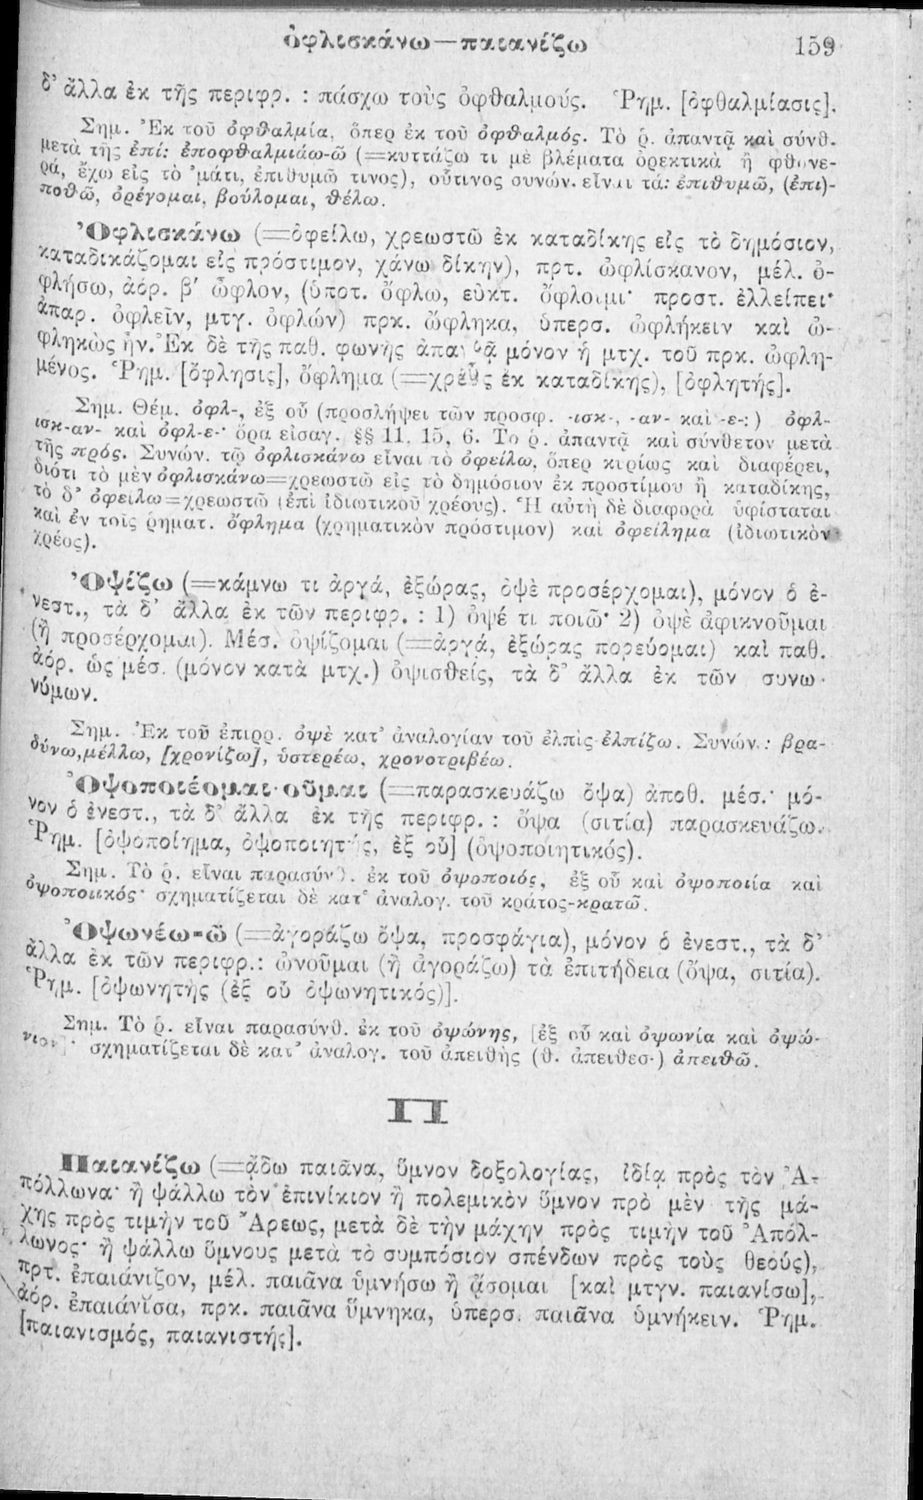 ὀφλισκάνω—παιανίζω 159
δ' ἄλλα ἐκ τῆς περιφρ. : πάσχω τοὺς ὀφθαλμούς. Ῥημ. [ὀφθαλμίασις].
Σημ. Ἐκ τοῦ ὀφθαλμία, ὅπερ ἐκ τοῦ ὀφθαλμός. Τὸ ῥ. ἀπαντᾷ καὶ σύνθ.
μετὰ τῆς ἐπί: ἐποφθαλμιάω-ῶ (=κυττάζω τι μὲ βλέματα ὀρεκτικὰ ἢ φθονε-
ρά, ἔχω εἰς τὸ 'μάτι, ἐπιθυμῶ τινος), οὗτινος συνών. εἶναι τά: ἐπιθυμῶ, (ἐπι)-
ποθῶ, ὀρέγομαι, βούλομαι, θέλω.
Ὀφλισκάνω (=ὀφείλω, χρεωστῶ ἐκ καταδίκης εἰς τὸ δημόσιον,
καταδικάζομαι εἰς πρόστιμον, χάνω δίκην), πρτ. ὠφλίσκανον, μέλ. ὀ-
φλήσω, ἀόρ. β' ὦφλον, (ὑποτ. ὄφλω, εὐκτ. ὄφλοιμι· προστ. ἐλλείπει·
ἀπαρ. ὀφλεῖν, μτγ. ὀφλών) πρκ. ὤφληκα, ὑπερσ. ὠφλήκειν καὶ ὠ-
φληκὼς ἦν. Ἐκ δὲ τῆς παθ. φωνῆς ἀπαντᾷ μόνον ἡ μτχ. τοῦ πρκ. ὠφλη-
μένος. Ῥημ. [ὄφλησις], ὄφλημα (=χρέος ἐκ καταδίκης), [ὀφλητής].
Σημ. Θέμ. ὀφλ-, ἐξ οὗ (προσλήψει τῶν προσφ. -ισκ-, -αν- καὶ -ε-:) ὀφλ-
ισκ-αν- καὶ ὀφλ-ε-· ὅρα εἰσαγ. §§ 11, 15, 6. Το ῥ. ἀπαντᾷ καὶ σύνθετον μετὰ
τῆς πρός. Συνών. τῷ ὀφλισκάνω εἶναι τὸ ὀφείλω, ὅπερ κυρίως καὶ διαφέρει,
διότι τὸ μὲν ὀφλισκάνω=χρεωστῶ εἰς τὸ δημόσιον ἐκ προστίμου ἢ καταδίκης,
τὸ δ' ὀφείλω=χρεωστῶ (ἐπὶ ἰδιωτικοῦ χρέους). Ἡ αὐτὴ δὲ διαφορὰ ὑφίσταται
καὶ ἐν τοῖς ῥηματ. ὄφλημα (χρηματικὸν πρόστιμον) καὶ ὀφείλημα (ἰδιωτικὸν
χρέος).
Ὀψίζω (=κάμνω τι ἀργά, ἐξώρας, ὀψὲ προσέρχομαι), μόνον ὁ ἐ-
νεστ., τὰ δ' ἄλλα ἐκ τῶν περιφρ. : 1) ὀψέ τι ποιῶ· 2) ὀψὲ ἀφικνοῦμαι
(ἢ προσέρχομαι). Μέσ. ὀψίζομαι (=ἀργά, ἐξώρας πορεύομαι) καὶ παθ.
ἀόρ. ὡς μέσ. (μόνον κατὰ μτχ.) ὀψισθείς, τὰ δ' ἄλλα ἐκ τῶν συνω-
νύμων.
Σημ. Ἐκ τοῦ ἐπιρρ. ὀψὲ κατ' ἀναλογίαν τοῦ ἐλπὶς-ἐλπίζω. Συνών.: βρα-
δύνω, μέλλω, [χρονίζω], ὑστερέω, χρονοτριβέω.
Ὀψοποιέομαι-οῦμαι (=παρασκευάζω ὄψα) ἀποθ. μέσ.· μό-
νον ὁ ἐνεστ., τὰ δ' ἄλλα ἐκ τῆς περιφρ. : ὄψα (σιτία) παρασκευάζω.
Ῥημ. [ὀψοποίημα, ὀψοποιητής, ἐξ οὗ] (ὀψοποιητικός).
Σημ. Τὸ ῥ. εἶναι παρασύνθ. ἐκ τοῦ ὀψοποιός, ἐξ οὗ καὶ ὀψοποιία καὶ
ὀψοποιικός· σχηματίζεται δὲ κατ' ἀναλογ. τοῦ κράτος-κρατῶ.
Ὀψωνέω-ῶ (=ἀγοράζω ὄψα, προσφάγια), μόνον ὁ ἐνεστ., τὰ δ'
ἄλλα ἐκ τῶν περιφρ.: ὠνοῦμαι (ἢ ἀγοράζω) τὰ ἐπιτήδεια (ὄψα, σιτία).
Ῥημ. [ὀψωνητὴς (ἐξ οὗ ὀψωνητικός)].
Σημ. Τὸ ῥ. εἶναι παρασύνθ. ἐκ τοῦ ὀψώνης, [ἐξ οὗ καὶ ὀψωνία καὶ ὀψώ-
νιον]· σχηματίζεται δὲ κατ' ἀναλογ. τοῦ ἀπειθὴς (θ. ἀπειθεσ-) ἀπειθῶ.
Π
Παιανίζω (=ᾄδω παιᾶνα, ὕμνον δοξολογίας, ἰδίᾳ πρὸς τὸν Ἀ-
πόλλωνα· ἢ ψάλλω τὸν ἐπινίκιον ἢ πολεμικὸν ὕμνον πρὸ μὲν τῆς μά-
χης πρὸς τιμὴν τοῦ Ἄρεως, μετὰ δὲ τὴν μάχην πρὸς τιμὴν τοῦ Ἀπόλ-
λωνος· ἢ ψάλλω ὕμνους μετὰ τὸ συμπόσιον σπένδων πρὸς τοὺς θεούς),
πρτ. ἐπαιάνιζον, μέλ. παιᾶνα ὑμνήσω ἢ ᾄσομαι [καὶ μτγν. παιανίσω],
ἀόρ. ἐπαιάνισα, πρκ. παιᾶνα ὕμνηκα, ὑπερσ. παιᾶνα ὑμνήκειν. Ῥημ.
[παιανισμός, παιανιστής].